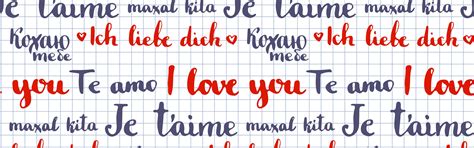 Je t'aime maxal kita Je t'aime maxal kita
Кохаю тебе Ich liebe dich Кохаю тебе Ich liebe dich
you Te amo I love you Te amo I love
maxal kita Je t'aime maxal kita Je t'aime